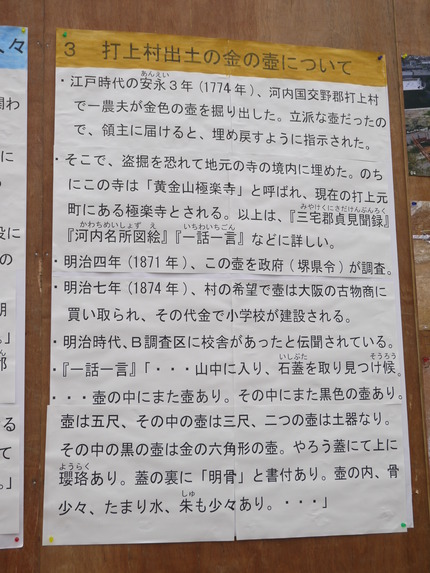 3 打上村出土の金の壺について
・江戸時代の安永3年(1774年)、河内国交野郡打上村
あんえい
で一農夫が金色の壺を掘り出した。立派な壺だったの
で、領主に届けると、埋め戻すように指示された。
・そこで、盗掘を恐れて地元の寺の境内に埋めた。のち
にこの寺は「黄金山極楽寺」と呼ばれ、現在の打上元
町にある極楽寺とされる。以上は、『三宅郡貞見聞録』
みやけくにさだけんぶんろく
『河内名所図絵』『一話一言』などに詳しい。
かわちめいしょずえ
いちわいちごん
・明治四年(1871年)、この壺を政府(堺県令)が調査。
・明治七年(1874年)、村の希望で壺は大阪の古物商に
買い取られ、その代金で小学校が建設される。
・明治時代、B調査区に校舎があったと伝聞されている。
・『一話一言』「・・・山中に入り、石蓋を取り見つけ候。
いしぶた
そうろう
・・・壺の中にまた壺あり。その中にまた黒色の壺あり。
壺は五尺、その中の壺は三尺、二つの壺は土器なり。
その中の黒の壺は金の六角形の壺。やろう蓋にて上に
瓔珞あり。蓋の裏に「明骨」と書付あり。壺の内、骨
ようらく
少々、たまり水、朱も少々あり。・・・」
しゅ